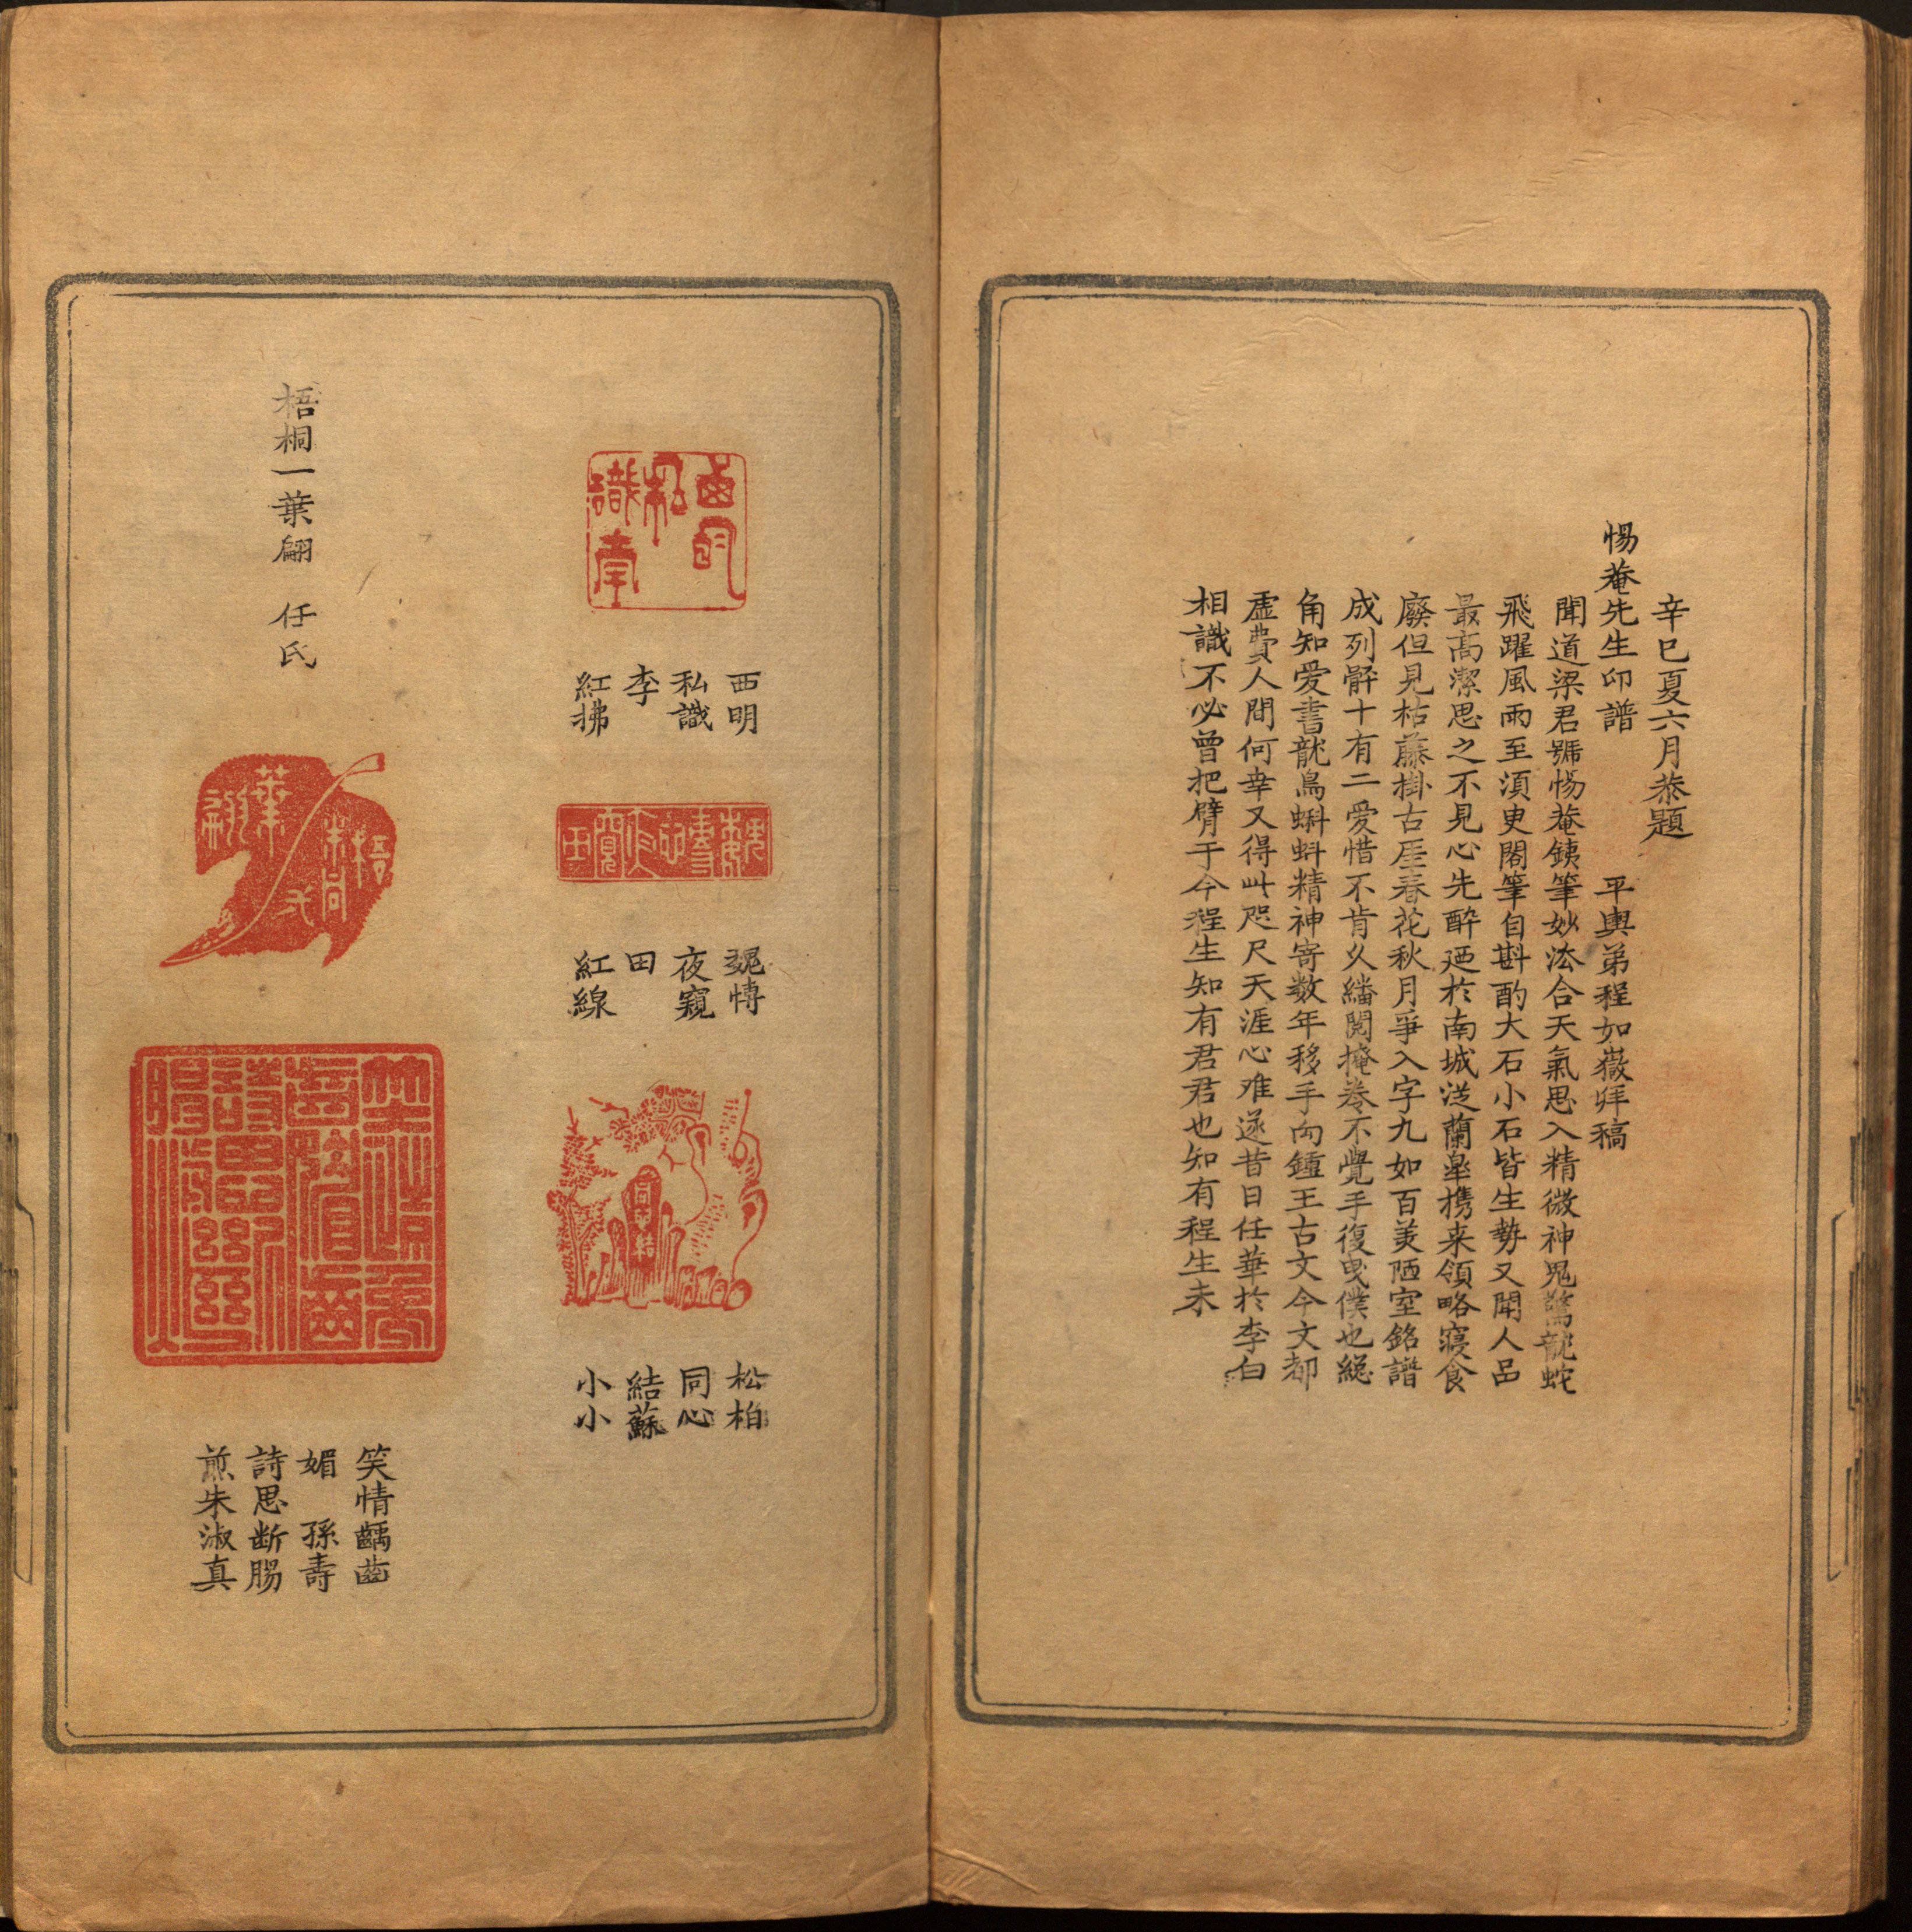 辛巳夏六月恭題
惕菴先生印譜　平輿弟程如嶽拜稿
聞道梁君號惕菴鐵筆妙法合天氣思入精微神鬼驚龍蛇
飛躍風雨至湏臾閣筆自斟酌大石小石皆生勢又聞人品
最高潔思之不見心先醉迺於南城淂蘭皐携来領略寢食
廢但見枯藤掛古厓春花秋月爭入字九如百美陋室銘譜
成列觧十有二愛惜不肯久繙閱掩卷不覺手復曳僕也總
角知爱書龍鳥蝌蚪精神寄数年移手向鍾王古文今文都
虛費人間何幸又得此咫尺天涯心难遂昔日任華於李白
相識不必曾把臂于今程生知有君君也知有程生未
西明
私識
李
紅拂
魏博
夜窺
田
紅線
松柏
同心
結蘇
小小
梧桐一葉翩　任氏
笑情齲齒
媚　孫壽
詩思断腸
煎朱淑真